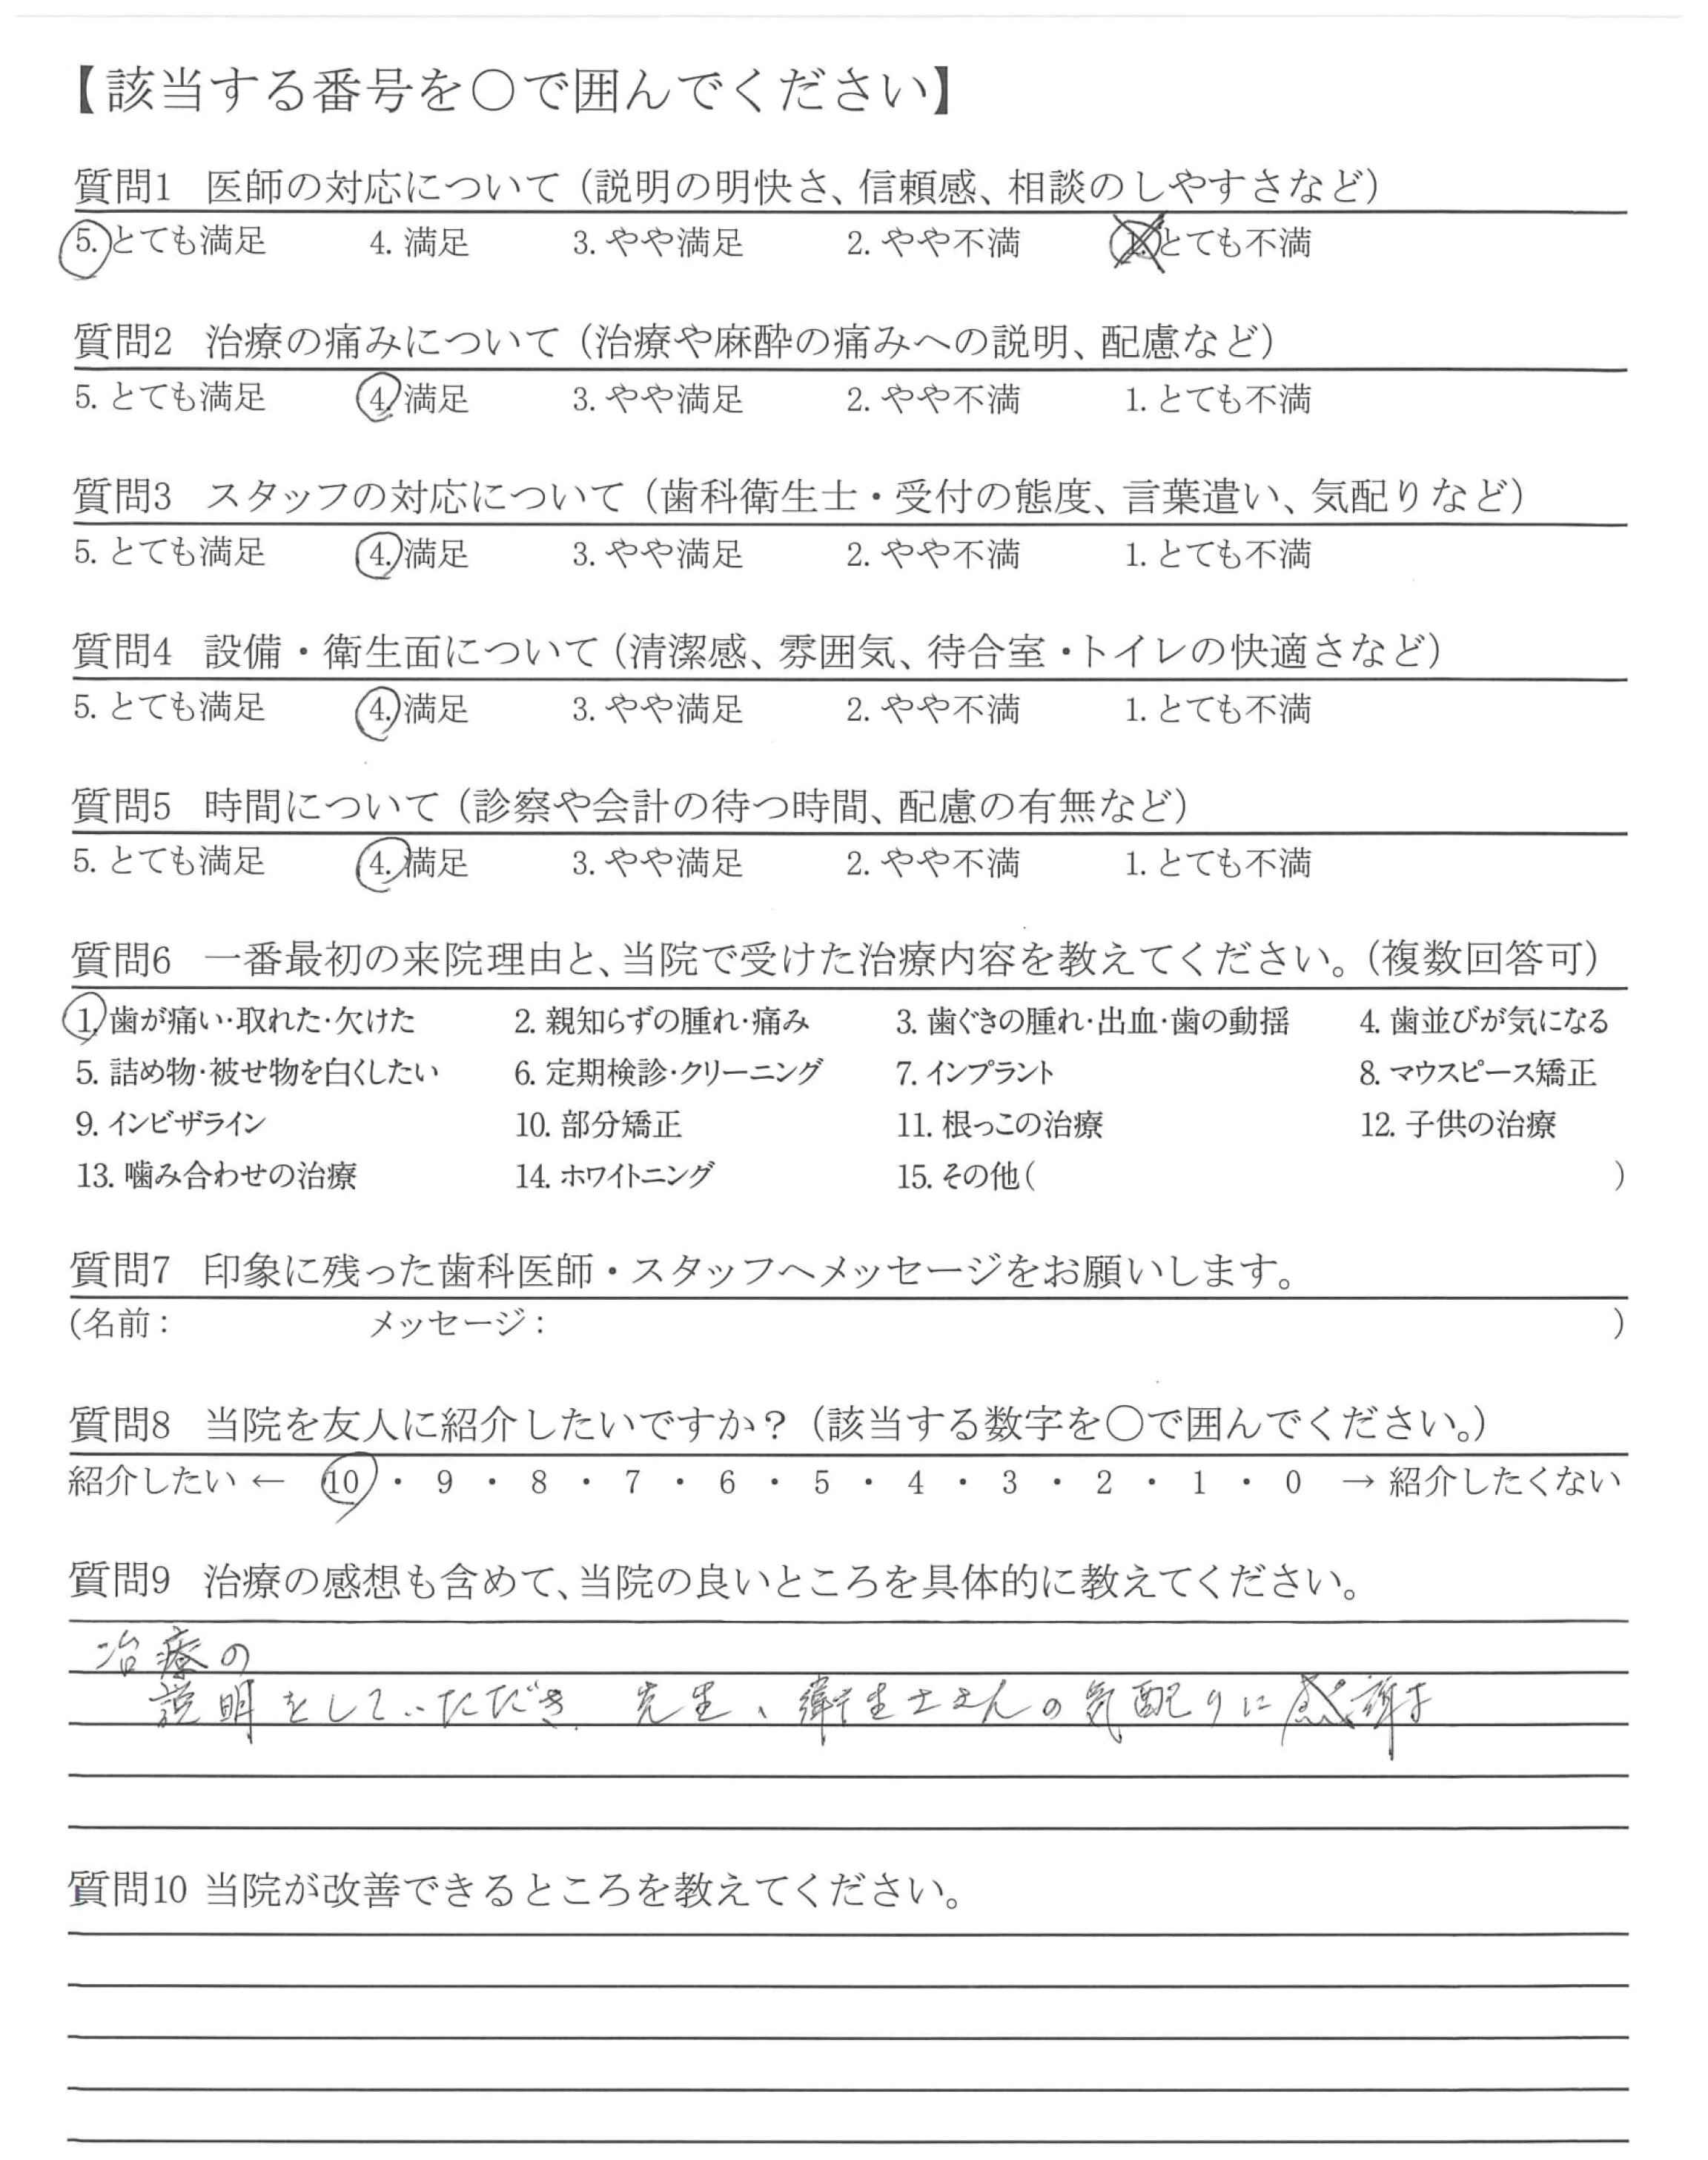 【該当する番号を○で囲んでください】
質問1 医師の対応について（説明の明快さ、信頼感、相談のしやすさなど）
5. とても満足 4. 満足 3. やや満足 2. やや不満 1. とても不満
質問2 治療の痛みについて（治療や麻酔の痛みへの説明、配慮など）
5. とても満足 4. 満足 3. やや満足 2. やや不満 1. とても不満
質問3 スタッフの対応について（歯科衛生士・受付の態度、言葉遣い、気配りなど）
5. とても満足 4. 満足 3. やや満足 2. やや不満 1. とても不満
質問4 設備・衛生面について（清潔感、雰囲気、待合室・トイレの快適さなど）
5. とても満足 4. 満足 3. やや満足 2. やや不満 1. とても不満
質問5 時間について（診察や会計の待つ時間、配慮の有無など）
5. とても満足 4. 満足 3. やや満足 2. やや不満 1. とても不満
質問6 一番最初の来院理由と、当院で受けた治療内容を教えてください。（複数回答可）
1. 歯が痛い・取れた・欠けた 2. 親知らずの腫れ・痛み 3. 歯ぐきの腫れ・出血・歯の動揺 4. 歯並びが気になる
5. 詰め物・被せ物を白くしたい 6. 定期検診・クリーニング 7. インプラント 8. マウスピース矯正
9. インビザライン 10. 部分矯正 11. 根っこの治療 12. 子供の治療
13. 噛み合わせの治療 14. ホワイトニング 15. その他（ ）
質問7 印象に残った歯科医師・スタッフへメッセージをお願いします。
（名前： メッセージ： ）
質問8 当院を友人に紹介したいですか？（該当する数字を○で囲んでください。）
紹介したい ← 10 ・ 9 ・ 8 ・ 7 ・ 6 ・ 5 ・ 4 ・ 3 ・ 2 ・ 1 ・ 0 → 紹介したくない
質問9 治療の感想も含めて、当院の良いところを具体的に教えてください。
治療の
説明をしていただき 先生、衛生士さんの気配りに感謝す
質問10 当院が改善できるところを教えてください。